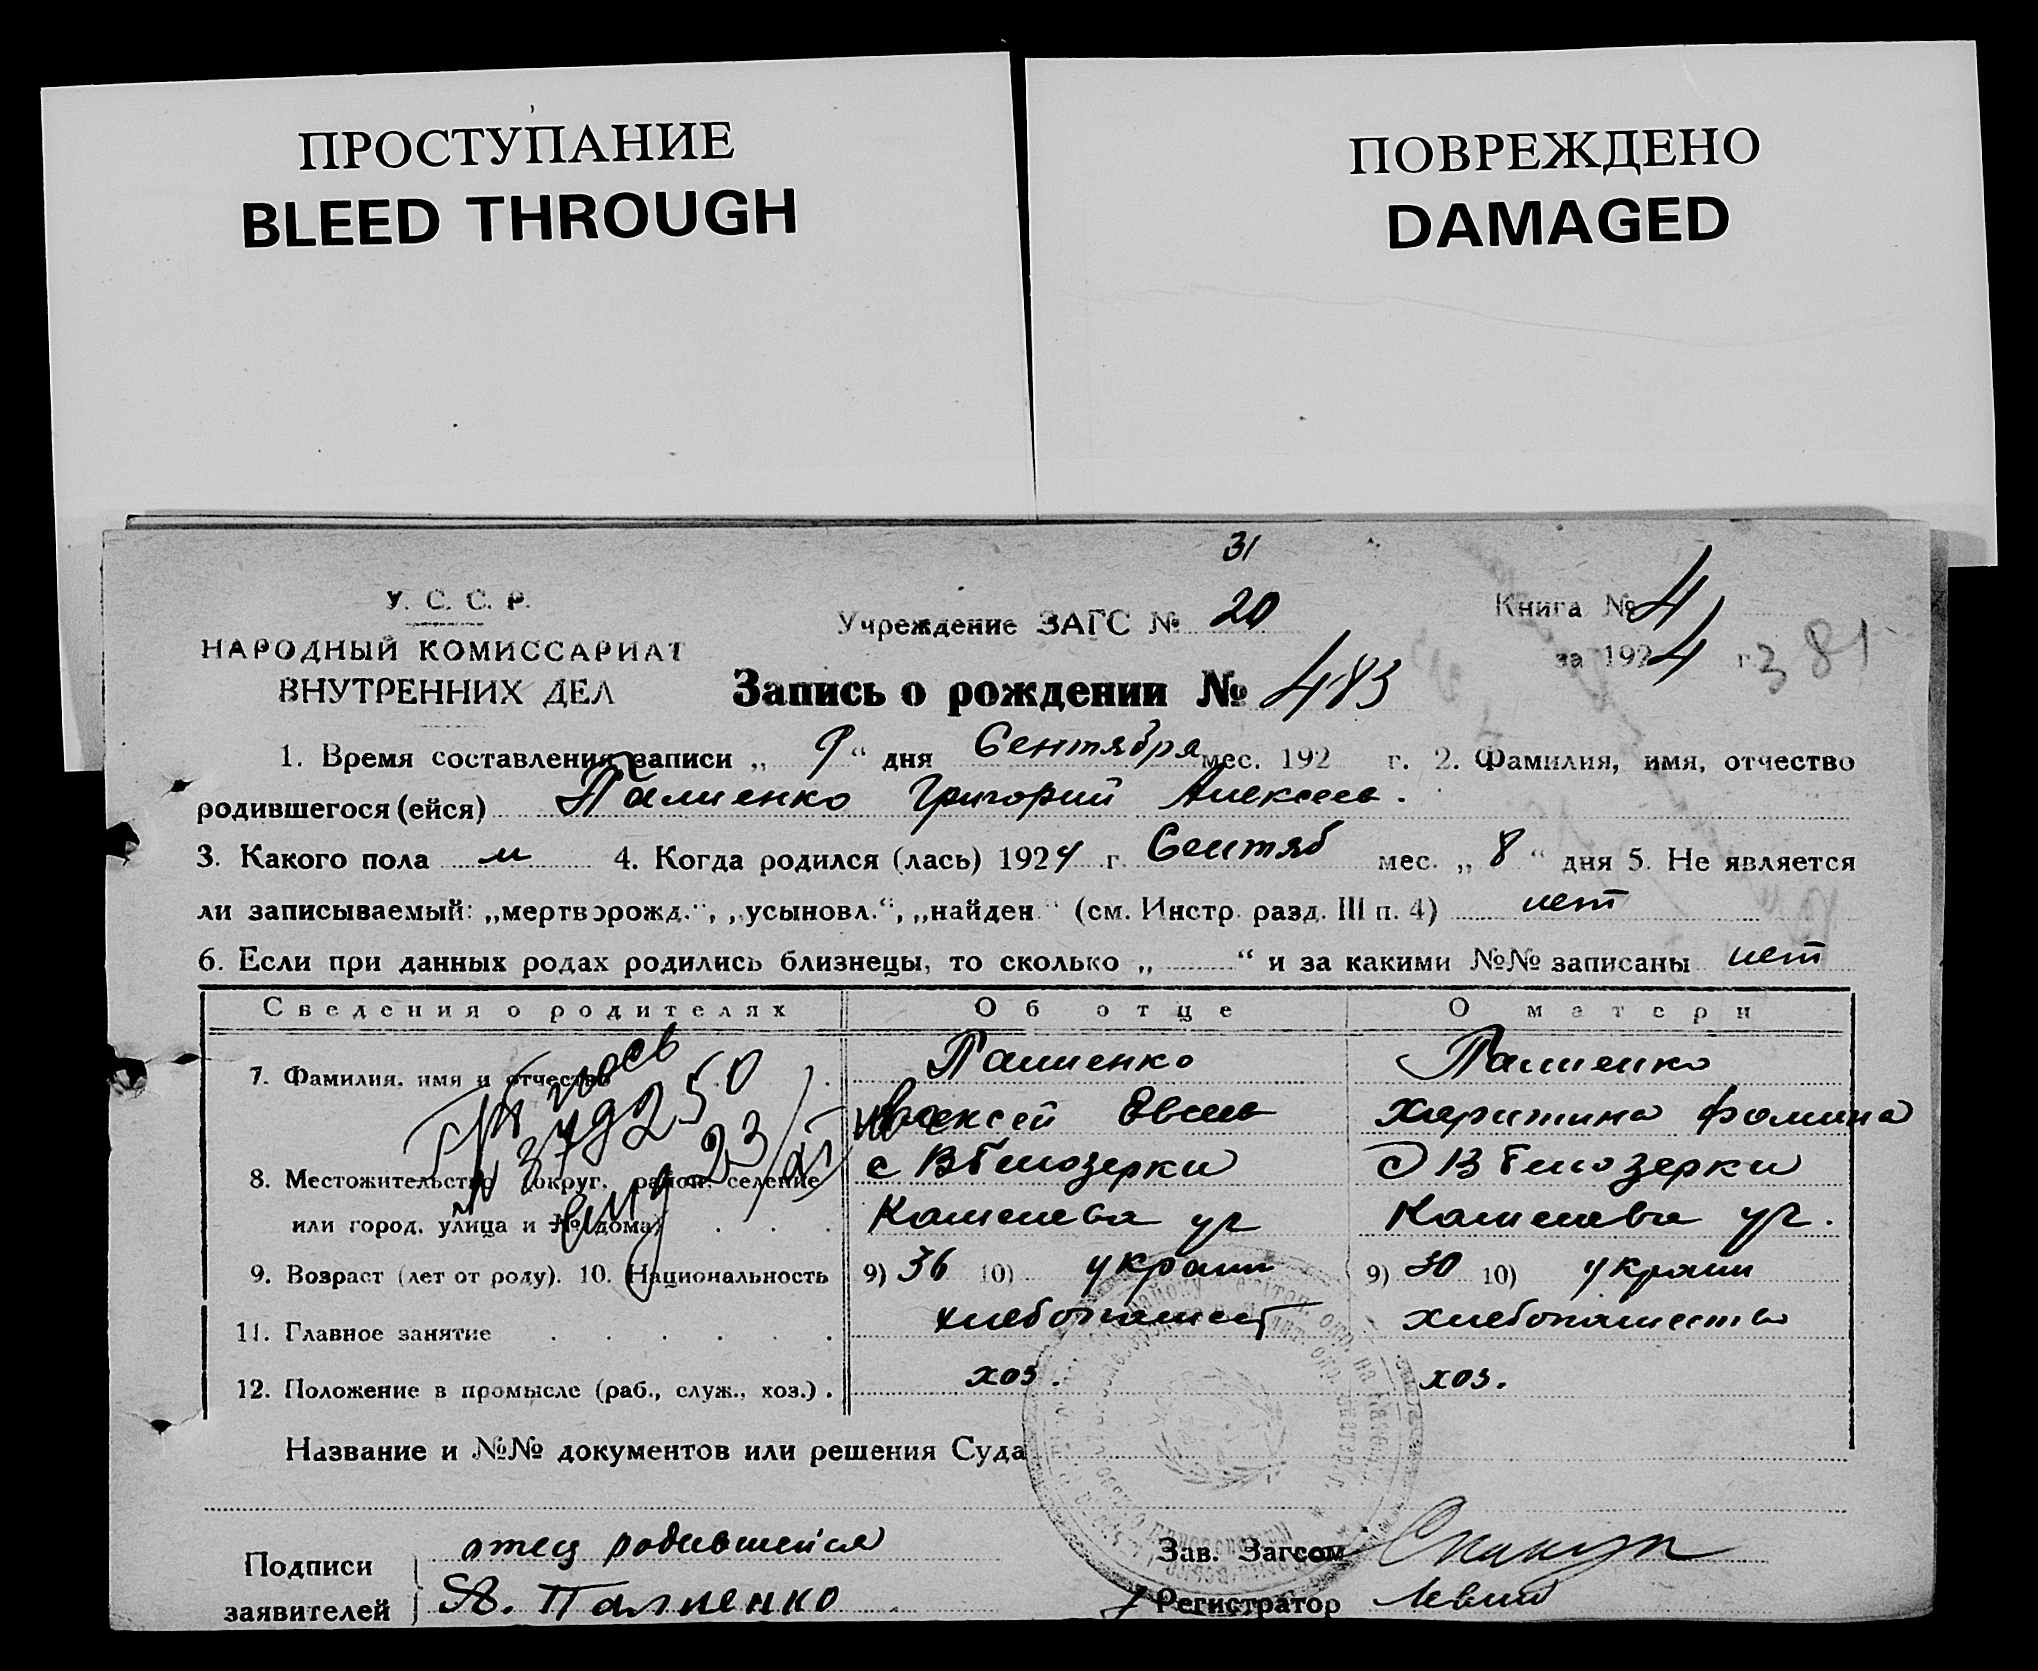 ПРОСТУПАНИЕ
BLEED THROUGH
ПОВРЕЖДЕНО
DAMAGED
31
У. С. С. Р.
НАРОДНЫЙ КОМИССАРИАТ
ВНУТРЕННИХ ДЕЛ
Учреждение ЗАГС № 20
Книга № 4
за 1924 г.
381
Запись о рождении № 483
1. Время составления записи „ 9 “ дня Сентября мес. 192 г. 2. Фамилия, имя, отчество
родившегося (ейся) Палиенко Григорий Алексеев.
3. Какого пола м 4. Когда родился (лась) 1924 г. Сентяб мес. „ 8 “ дня 5. Не является
ли записываемый: „мертворожд.“, „усыновл.“, „найден“ (см. Инстр. разд. III п. 4) нет
6. Если при данных родах родились близнецы, то сколько „ “ и за какими №№ записаны нет
Сведения о родителях Об отце О матери
7. Фамилия, имя и отчество Палиенко Палиенко
Алексей Евсеев Харитина Фомина
8. Местожительство (округ, район, селение с В Белозерки с В Белозерки
или город, улица и № дома) Каменева ул Каменева ул.
9. Возраст (лет от роду). 10. Национальность 9) 36 10) украин 9) 30 10) украин
11. Главное занятие хлебопашест хлебопашество
12. Положение в промысле (раб., служ., хоз.) хоз. хоз.
Название и №№ документов или решения Суда
Подписи заявителей отец родившейся
А. Палиенко
Зав. Загсом
Регистратор